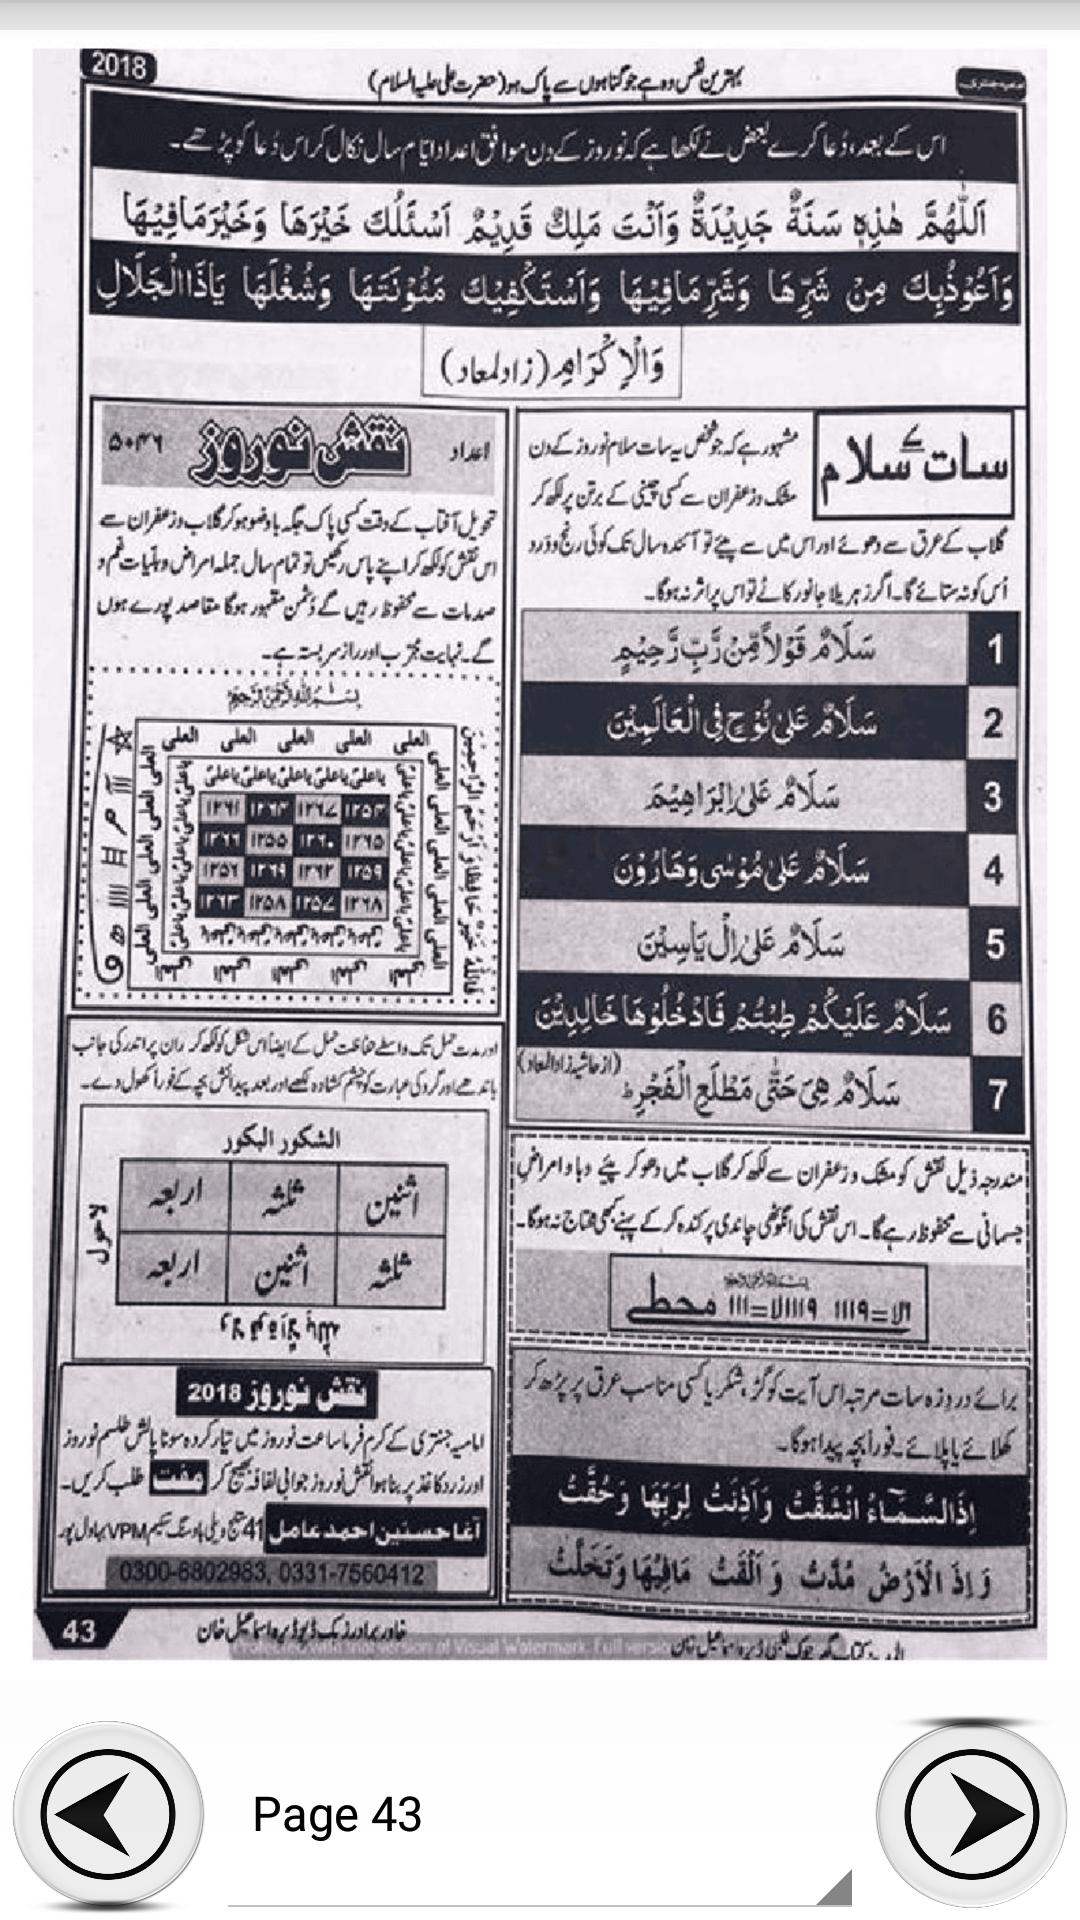 2018
بہترین نفس وہ ہے جو گناہوں سے پاک ہو (حضرت علی علیہ السلام)
اس کے بعد، دُعا کرے بعض نے لکھا ہے کہ نوروز کے دن موافق اعداد ایام سال نکال کر اس دُعا کو پڑھے۔
اَللّٰهُمَّ هٰذِهٖ سَنَةٌ جَدِيْدَةٌ وَاَنْتَ مَلِكٌ قَدِيْمٌ اَسْئَلُكَ خَيْرَهَا وَخَيْرَمَافِيْهَا
وَاَعُوْذُبِكَ مِنْ شَرِّهَا وَشَرِّمَافِيْهَا وَاَسْتَكْفِيْكَ مَئُوْنَتَهَا وَشُغْلَهَا يَاذَاالْجَلَالِ
وَالْاِكْرَامِ (زادلمعاد)
سات کے سلام
مشہور ہے کہ جو شخص یہ سات سلام نوروز کے دن
مشک و زعفران سے کسی چینی کے برتن پر لکھ کر
گلاب کے عرق سے دھوئے اور اس میں سے پیئے تو آئندہ سال تک کوئی رنج و درد
اُس کو نہ ستائے گا۔ اگر زہریلا جانور کاٹے تو اس پر اثر نہ ہوگا۔
1 سَلَامٌ قَوْلاً مِّنْ رَّبِّ رَّحِيْمٍ
2 سَلَامٌ عَلىٰ نُوْحٍ فِى الْعَالَمِيْنَ
3 سَلَامٌ عَلىٰ اِبْرَاهِيْمَ
4 سَلَامٌ عَلىٰ مُوْسٰى وَهَارُوْنَ
5 سَلَامٌ عَلىٰ اِلْ يَاسِيْنَ
6 سَلَامٌ عَلَيْكُمْ طِبْتُمْ فَادْخُلُوْهَا خَالِدِيْنَ
7 سَلَامٌ هِىَ حَتّٰى مَطْلَعِ الْفَجْرِ ط
(از حاشیہ زادالمعاد)
مندرجہ ذیل نقش کو مشک و زعفران سے لکھ کر گلاب میں دھو کر پیئے وبا و امراض
جسمانی سے محفوظ رہے گا۔ اس نقش کی انگوٹھی چاندی پر کندہ کر کے پہنے کبھی محتاج نہ ہوگا۔
برائے دردِ زہ سات مرتبہ اس آیت کو گڑ، شکر یا کسی مناسب عرق پر پڑھ کر
کھلائے یا پلائے۔ فوراً بچہ پیدا ہوگا۔
اِذَاالسَّمَآءُ انْشَقَّتْ وَاَذِنَتْ لِرَبِّهَا وَحُقَّتْ
وَاِذَ الْاَرْضُ مُدَّتْ وَاَلْقَتْ مَافِيْهَا وَتَخَلَّتْ
نقش نوروز
اعداد ۵۰۴۶
تحویل آفتاب کے وقت کسی پاک جگہ باوضو ہو کر گلاب و زعفران سے
اس نقش کو لکھ کر اپنے پاس رکھیں تو تمام سال جملہ امراض و بلیات غم و
صدمات سے محفوظ رہیں گے دُشمن مقہور ہوگا مقاصد پورے ہوں
گے۔ نہایت مجرّب اور راز سربستہ ہے۔
بسم الله الرحمن الرحيم
العلى العلى العلى العلى العلى
ياعلى ياعلى ياعلى ياعلى ياعلى
۱۲۵۴ ۱۲۶۷ ۱۲۶۴ ۱۲۶۱
۱۲۶۵ ۱۲۶۰ ۱۲۵۵ ۱۲۶۶
۱۲۵۹ ۱۲۶۲ ۱۲۶۹ ۱۲۵۶
۱۲۶۸ ۱۲۵۷ ۱۲۵۸ ۱۲۶۳
فالله خير حافظا و ارحم الراحمين
اور مدت حمل تک واسطے حفاظت حمل کے ایضاً اس شکل کو لکھ کر ران پر اندر کی جانب
باندھے اور گرد کی عبارت کو چشم کشادہ لکھے اور بعد پیدائش بچہ کے فوراً کھول دے۔
الشكور البكور
اثنين ثلثه اربعه
ثلثه اثنين اربعه
لاحول
ولا قوة الا بالله
نقش نوروز 2018
امامیہ جنتری کے کرم فرما ساعت نوروز میں تیار کردہ سونا پالش طلسم نوروز
اور زرد کاغذ پر بنا ہوا نقش نوروز جوابی لفافہ بھیج کر مفت طلب کریں۔
آغا حسنین احمد عامل 41 ستلج ویلی ہاؤسنگ سکیم VPM بہاول پور
0300-6802983, 0331-7560412
43
خاور برادرز بک ڈپو ڈیرہ اسماعیل خان
Protected with trial version of Visual Watermark. Full version
Page 43